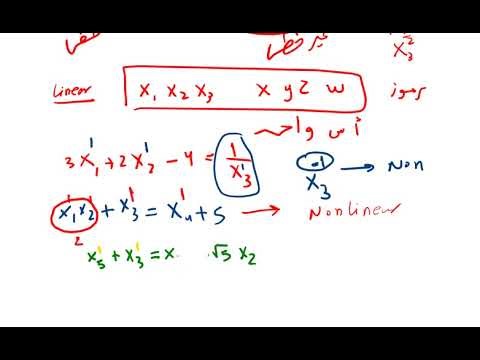 x₃²
Linear x₁ x₂ x₃ x y z w رموز
أس 1
3x₁¹ + 2x₂¹ - 4 = 1/x₃¹ x₃⁻¹ → Non
x₁¹x₂¹ + x₃¹ = x₄¹ + 5 → Nonlinear
2
x₅¹ + x₃¹ = x √5 x₂